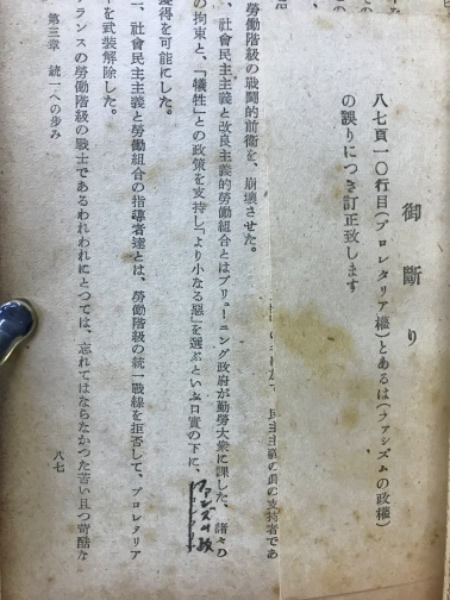 御斷り
八七頁一〇行目(プロレタリア權)とあるは(ファシズムの政權)
の誤りにつき訂正致します
民主主義の眞の支持者であ
勞働階級の戰鬪的前衞を、崩壞させた。
、社會民主主義と改良主義的勞働組合とはブリューニング政府が勤勞大衆に課した、諸々の
の拘束と、「犧牲」との政策を支持し「より小なる惡」を選ぶといふ口實の下に、
ファシズムの政
獲得を可能にした。
一、社會民主主義と勞働組合の指導者達とは、勞働階級の統一戰線を拒否して、プロレタリア
を武裝解除した。
ランスの勞働階級の戰士であるわれわれにとつては、忘れてはならなかつた苦い且つ苛酷な
第三章 統一への歩み
八七